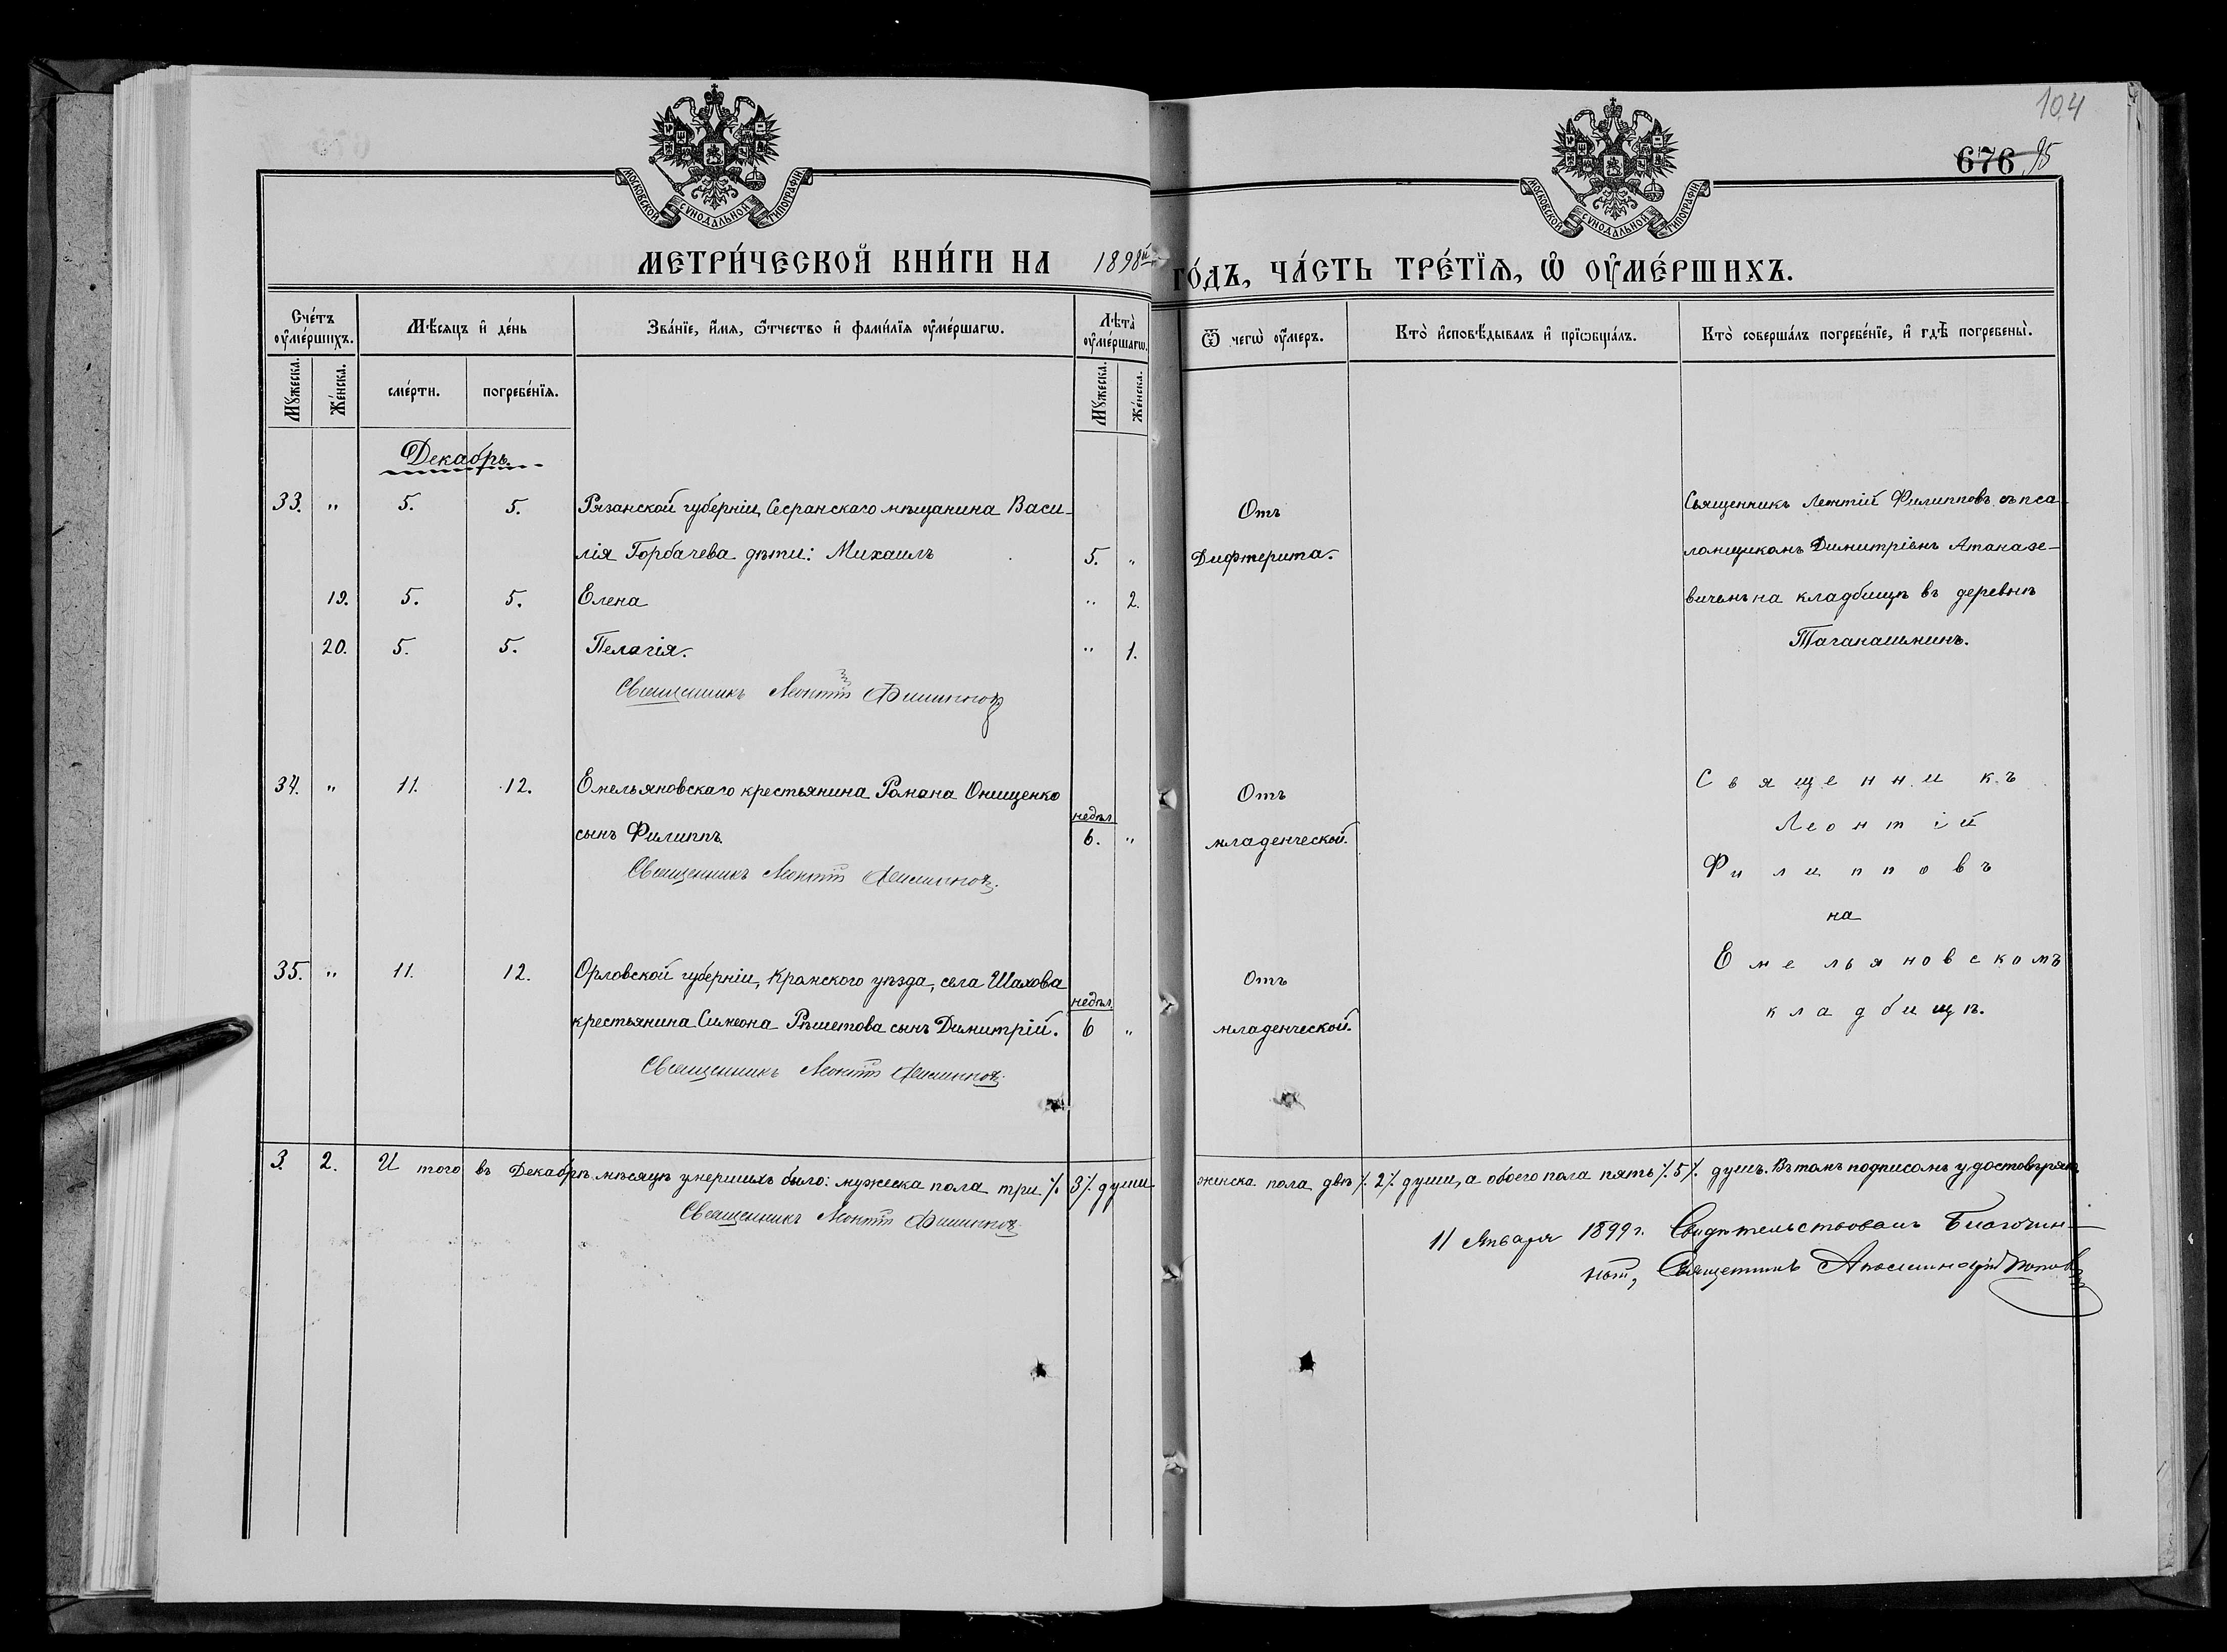 104
676 95
МОСКОВСКОЙ СѴНОДАЛЬНОЙ ТИПОГРАФІИ
МОСКОВСКОЙ СѴНОДАЛЬНОЙ ТИПОГРАФІИ
МЕТРИ́ЧЕСКОЙ КНИ́ГИ НА 1898й ГО́ДЪ, ЧА́СТЬ ТРЕ́ТІѦ, Ѽ ОУ҆МЕ́РШИХЪ.
Сче́тъ оу҆ме́ршихъ.
Мꙋ́жеска.
Же́нска.
Мѣ́сяцъ и҆ де́нь
сме́рти.
погребе́нїя.
Зва́нїе, и҆́мя, ѻ҆́тчество и҆ фами́лїя оу҆ме́ршагѡ.
Лѣта̀ оу҆ме́ршагѡ.
Мꙋ́жеска.
Же́нска.
Ѿ чегѡ̀ оу҆́меръ.
Кто̀ и҆сповѣ́дывалъ и҆ прїѡбща́лъ.
Кто̀ соверша́лъ погребе́нїе, и҆ гдѣ̀ погребены̀.
Декабрь.
33. " 5. 5. Рязанской губерніи, Сесранскаго мѣщанина Васи-
лія Горбачева дѣти: Михаилъ 5. "
Отъ
Дифтерита.
Священникъ Леонтій Филипповъ съ пса-
ломщикомъ Димитріемъ Атаназе-
вичемъ на кладбищѣ въ деревнѣ
19. 5. 5. Елена " 2.
Таганашминъ.
20. 5. 5. Пелагія. " 1.
Священникъ Леонтій Филипповъ
34. " 11. 12. Емельяновскаго крестьянина Романа Онищенко
сынъ Филиппъ. недѣл. 6. "
Отъ
младенческой.
Священникъ
Леонтій
Филипповъ
на
Емельяновскомъ
кладбищѣ.
Священникъ Леонтій Филипповъ.
35. " 11. 12. Орловской губерніи, Кромского уѣзда, села Шахова
крестьянина Симеона Рѣшетова сынъ Димитрій. недѣл. 6 "
Отъ
младенческой.
Священникъ Леонтій Филипповъ.
3. 2. И того въ Декабрѣ мѣсяцѣ умершихъ было: мужеска пола три ./. 3 ./. души женска пола двѣ ./. 2 ./. души, а обоего пола пять ./. 5 ./. душъ. Въ томъ подписомъ удостовѣряю
Священникъ Леонтій Филипповъ
11 Января 1899 г. Свидѣтельствовалъ Благочин-
ный, Священникъ Аполлинарій Поповъ